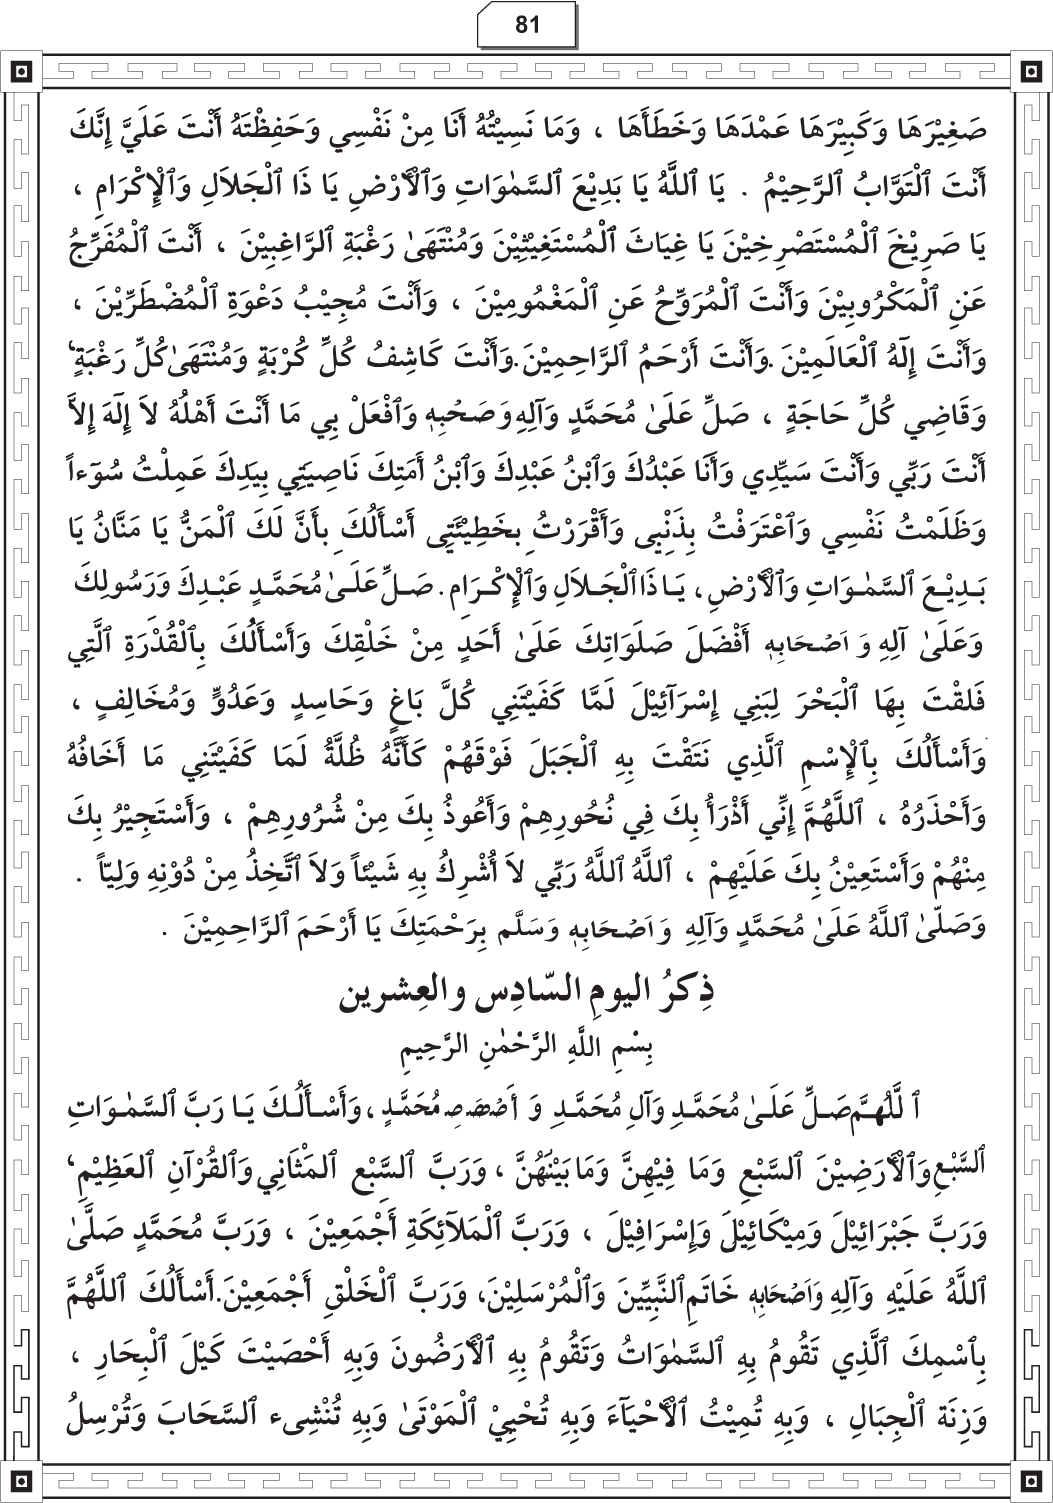 81
صَغِيْرَهَا وَكَبِيْرَهَا عَمْدَهَا وَخَطَأَهَا ، وَمَا نَسِيْتُهُ أَنَا مِنْ نَفْسِي وَحَفِظْتَهُ أَنْتَ عَلَيَّ إِنَّكَ
أَنْتَ ٱلْتَوَّابُ ٱلرَّحِيْمُ . يَا ٱللَّهُ يَا بَدِيْعَ ٱلسَّمٰوَاتِ وَٱلْأَرْضِ يَا ذَا ٱلْجَلاَلِ وَٱلْإِكْرَامِ ،
يَا صَرِيْخَ ٱلْمُسْتَصْرِخِيْنَ يَا غِيَاثَ ٱلْمُسْتَغِيْثِيْنَ وَمُنْتَهَىٰ رَغْبَةِ ٱلرَّاغِبِيْنَ ، أَنْتَ ٱلْمُفَرِّجُ
عَنِ ٱلْمَكْرُوبِيْنَ وَأَنْتَ ٱلْمُرَوِّحُ عَنِ ٱلْمَغْمُومِيْنَ ، وَأَنْتَ مُجِيْبُ دَعْوَةِ ٱلْمُضْطَرِّيْنَ ،
وَأَنْتَ إِلَهُ ٱلْعَالَمِيْنَ .وَأَنْتَ أَرْحَمُ ٱلرَّاحِمِيْنَ.وَأَنْتَ كَاشِفُ كُلِّ كُرْبَةٍ وَمُنْتَهَىٰ كُلِّ رَغْبَةٍ'
وَقَاضِي كُلِّ حَاجَةٍ ، صَلِّ عَلَىٰ مُحَمَّدٍ وَآلِهِ وَصَحْبِهٖ وَٱفْعَلْ بِي مَا أَنْتَ أَهْلُهُ لاَ إِلَهَ إِلاَّ
أَنْتَ رَبِّي وَأَنْتَ سَيِّدِي وَأَنَا عَبْدُكَ وَٱبْنُ عَبْدِكَ وَٱبْنُ أَمَتِكَ نَاصِيَتِي بِيَدِكَ عَمِلْتُ سُوٓءاً
وَظَلَمْتُ نَفْسِي وَٱعْتَرَفْتُ بِذَنْبِى وَأَقْرَرْتُ بِخَطِيْئَتِى أَسْأَلُكَ بِأَنَّ لَكَ ٱلْمَنُّ يَا مَنَّانُ يَا
بَدِيْعَ ٱلسَّمٰوَاتِ وَٱلْأَرْضِ، يَا ذَا ٱلْجَلاَلِ وَٱلْإِكْرَامِ . صَلِّ عَلَىٰ مُحَمَّدٍ عَبْدِكَ وَرَسُولِكَ
وَعَلَىٰ آلِهِ وَ اَصْحَابِهٖ أَفْضَلَ صَلَوَاتِكَ عَلَىٰ أَحَدٍ مِنْ خَلْقِكَ وَأَسْأَلُكَ بِٱلْقُدْرَةِ ٱلَّتِي
فَلَقْتَ بِهَا ٱلْبَحْرَ لِبَنِي إِسْرَآئِيْلَ لَمَّا كَفَيْتَنِي كُلَّ بَاغٍ وَحَاسِدٍ وَعَدُوٍّ وَمُخَالِفٍ ،
وَأَسْأَلُكَ بِٱلْإِسْمِ ٱلَّذِي نَتَقْتَ بِهِ ٱلْجَبَلَ فَوْقَهُمْ كَأَنَّهُ ظُلَّةٌ لَمَا كَفَيْتَنِي مَا أَخَافُهُ
وَأَحْذَرُهُ ، ٱللَّهُمَّ إِنِّي أَذْرَأُ بِكَ فِي نُحُورِهِمْ وَأَعُوذُ بِكَ مِنْ شُرُورِهِمْ ، وَأَسْتَجِيْرُ بِكَ
مِنْهُمْ وَأَسْتَعِيْنُ بِكَ عَلَيْهِمْ ، ٱللَّهُ ٱللَّهُ رَبِّي لاَ أُشْرِكُ بِهِ شَيْئاً وَلاَ اَتَّخِذُ مِنْ دُوْنِهِ وَلِيّاً .
وَصَلّىٰ ٱللَّهُ عَلَىٰ مُحَمَّدٍ وَآلِهِ وَ اَصْحَابِهٖ وَسَلَّم بِرَحْمَتِكَ يَا أَرْحَمَ ٱلرَّاحِمِيْنَ .
ذِكرُ اليومِ السّادِس والعِشرين
بِسْمِ اللَّهِ الرَّحْمٰنِ الرَّحِيمِ
ٱ للَّهُمَّ صَلِّ عَلَىٰ مُحَمَّدٍ وَآلِ مُحَمَّدٍ وَ مُحَمَّدٍ ،وَأَسْأَلُكَ يَا رَبَّ ٱلسَّمٰوَاتِ
ٱلسَّبْعِ وَٱلْأَرَضِيْنَ ٱلسَّبْعِ وَمَا فِيْهِنَّ وَمَا بَيْنَهُنَّ ، وَرَبَّ ٱلسَّبْعِ ٱلمَثَانِي وَٱلقُرْآنِ ٱلعَظِيْمِ'
وَرَبَّ جَبْرَائِيْلَ وَمِيْكَائِيْلَ وَإِسْرَافِيْلَ ، وَرَبَّ ٱلْمَلآئِكَةِ أَجْمَعِيْنَ ، وَرَبَّ مُحَمَّدٍ صَلَّىٰ
ٱللَّهُ عَلَيْهِ وَآلِهِ وَاَصْحَابِهٖ خَاتَمِ ٱلنَّبِيِّينَ وَٱلْمُرْسَلِيْنَ، وَرَبَّ ٱلْخَلْقِ أَجْمَعِيْنَ.أَسْأَلُكَ ٱللَّهُمَّ
بِٱسْمِكَ ٱلَّذِي تَقُومُ بِهِ ٱلسَّمٰوَاتُ وَتَقُومُ بِهِ ٱلْأَرَضُونَ وَبِهِ أَحْصَيْتَ كَيْلَ ٱلْبِحَارِ ،
وَزِنَة ٱلْجِبَالِ ، وَبِهِ تُمِيْتُ ٱلْأَحْيَآءَ وَبِهِ تُحْيِيْ ٱلْمَوْتَىٰ وَبِهِ تُنْشِىء ٱلسَّحَابَ وَتُرْسِلُ